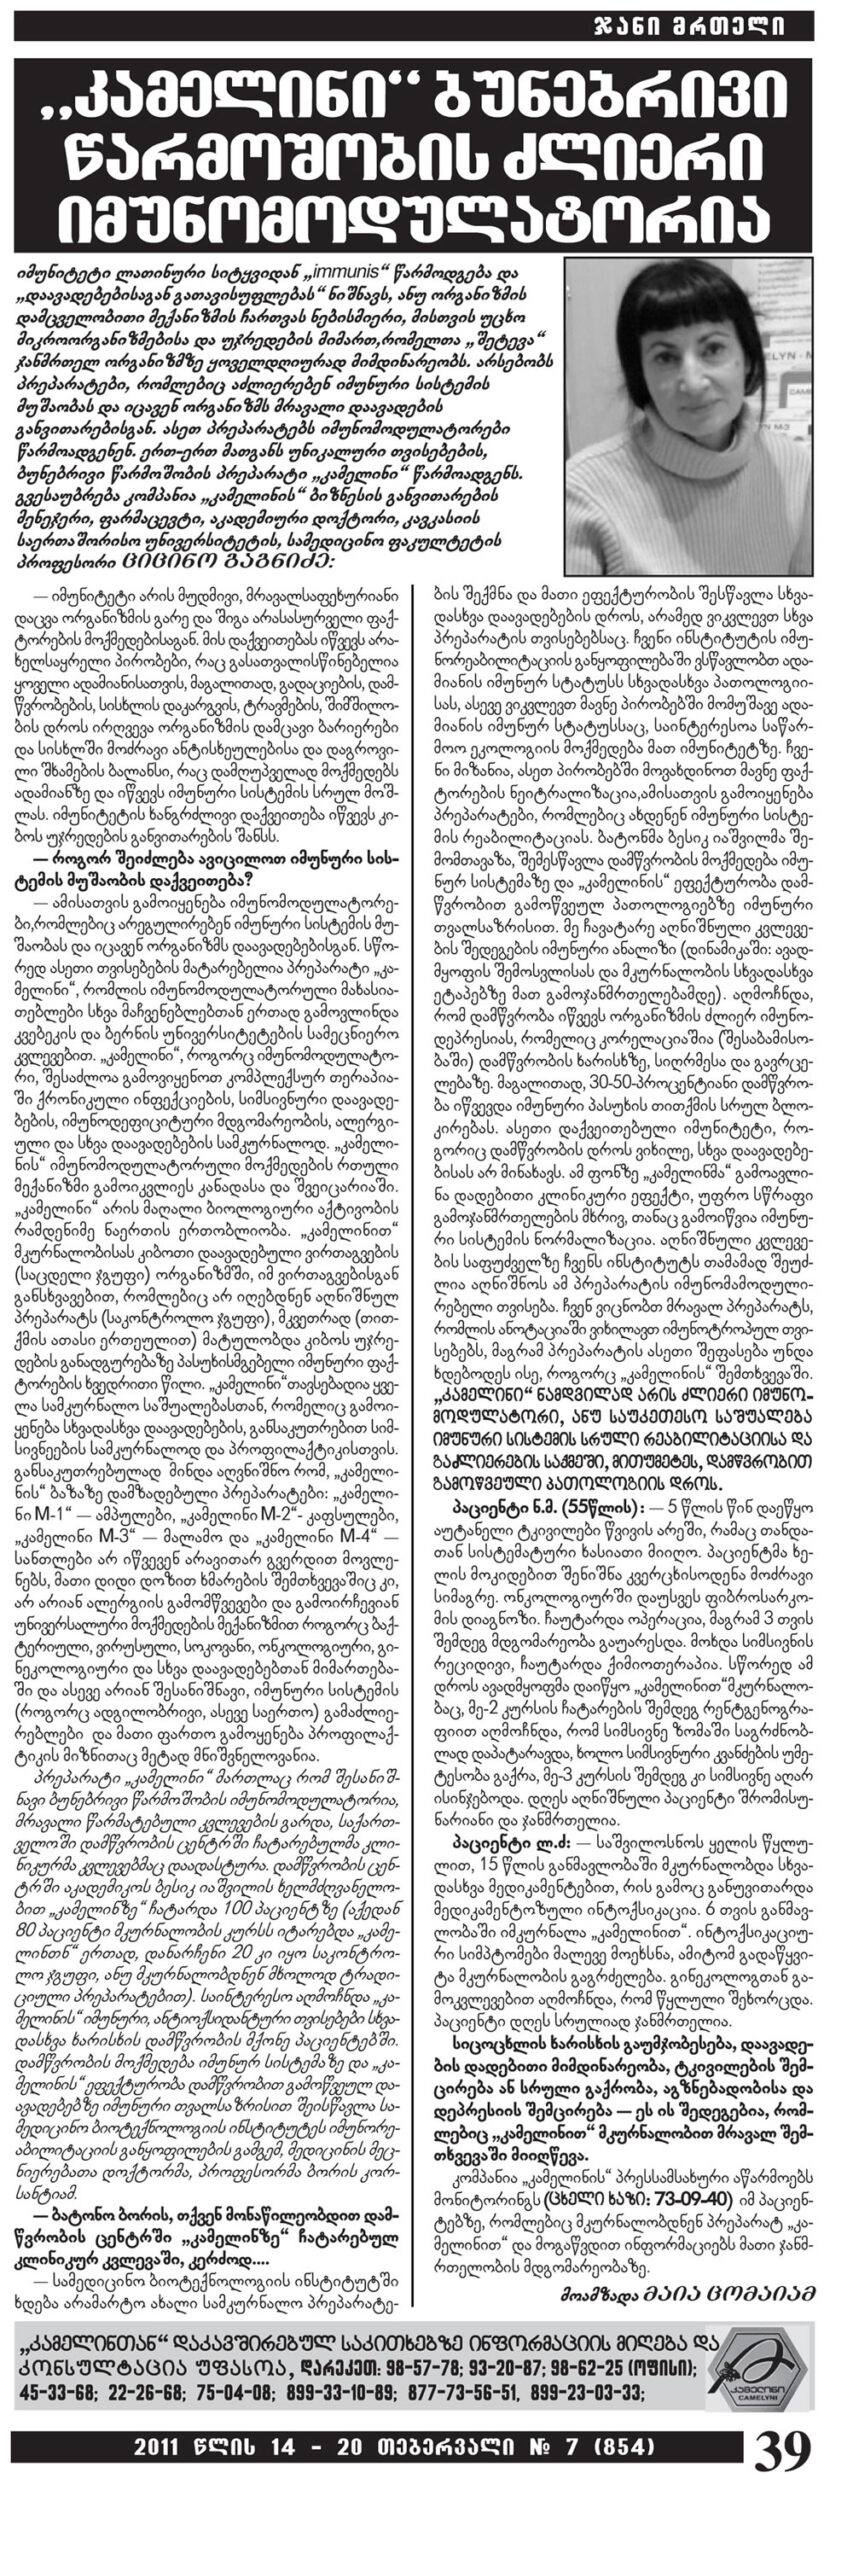 ჯანი მრთელი
„კამელინი“ ბუნებრივი
წარმოშობის ძლიერი
იმუნომოდულატორია
იმუნიტეტი ლათინური სიტყვიდან „immunis“ წარმოდგება და
„დაავადებებისაგან გათავისუფლებას“ ნიშნავს, ანუ ორგანიზმის
დამცველობითი მექანიზმის ჩართვას ნებისმიერი, მისთვის უცხო
მიკროორგანიზმებისა და უჯრედების მიმართ,რომელთა „შეტევა“
ჯანმრთელ ორგანიზმზე ყოველდღიურად მიმდინარეობს. არსებობს
პრეპარატები, რომლებიც აძლიერებენ იმუნური სისტემის
მუშაობას და იცავენ ორგანიზმს მრავალი დაავადების
განვითარებისგან. ასეთ პრეპარატებს იმუნომოდულატორები
წარმოადგენენ. ერთ-ერთ მათგანს უნიკალური თვისებების,
ბუნებრივი წარმოშობის პრეპარატი „კამელინი“ წარმოადგენს.
გვესაუბრება კომპანია „კამელინის“ ბიზნესის განვითარების
მენეჯერი, ფარმაცევტი, აკადემიური დოქტორი, კავკასიის
საერთაშორისო უნივერსიტეტის, სამედიცინო ფაკულტეტის
პროფესორი ციცინო გაგნიძე:
— იმუნიტეტი არის მუდმივი, მრავალსაფეხურიანი
დაცვა ორგანიზმის გარე და შიგა არასასურველი ფაქ-
ტორების მოქმედებისაგან. მის დაქვეითებას იწვევს არა-
ხელსაყრელი პირობები, რაც გასათვალისწინებელია
ყოველი ადამიანისათვის, მაგალითად, გადაციების, დამ-
წვრობების, სისხლის დაკარგვის, ტრავმების, შიმშილო-
ბის დროს ირღვევა ორგანიზმის დამცავი ბარიერები
და სისხლში მოძრავი ანტისხეულებისა და დაგროვი-
ლი შხამების ბალანსი, რაც დამღუპველად მოქმედებს
ადამიანზე და იწვევს იმუნური სისტემის სრულ მოშ-
ლას. იმუნიტეტის ხანგრძლივი დაქვეითება იწვევს კი-
ბოს უჯრედების განვითარების შანსს.
— როგორ შეიძლება ავიცილოთ იმუნური სის-
ტემის მუშაობის დაქვეითება?
— ამისათვის გამოიყენება იმუნომოდულატორე-
ბი,რომლებიც არეგულირებენ იმუნური სისტემის მუ-
შაობას და იცავენ ორგანიზმს დაავადებებისგან. სწო-
რედ ასეთი თვისებების მატარებელია პრეპარატი „კა-
მელინი“, რომლის იმუნომოდულატორული მახასია-
თებლები სხვა მაჩვენებლებთან ერთად გამოვლინდა
კვებეკის და ბერნის უნივერსიტეტების სამეცნიერო
კვლევებით. „კამელინი“, როგორც იმუნომოდულატო-
რი, შესაძლოა გამოვიყენოთ კომპლექსურ თერაპია-
ში ქრონიკული ინფექციების, სიმსივნური დაავადე-
ბების, იმუნოდეფიციტური მდგომარეობის, ალერგი-
ული და სხვა დაავადებების სამკურნალოდ. „კამელი-
ნის“ იმუნომოდულატორული მოქმედების რთული
მექანიზმი გამოიკვლიეს კანადასა და შვეიცარიაში.
„კამელინი“ არის მაღალი ბიოლოგიური აქტივობის
რამდენიმე ნაერთის ერთობლიობა. „კამელინით“
მკურნალობისას კიბოთი დაავადებული ვირთაგვების
(საცდელი ჯგუფი) ორგანიზმში, იმ ვირთაგვებისგან
განსხვავებით, რომლებიც არ იღებდნენ აღნიშნულ
პრეპარატს (საკონტროლო ჯგუფი), მკვეთრად (თით-
ქმის ათასი ერთეულით) მატულობდა კიბოს უჯრე-
დების განადგურებაზე პასუხისმგებელი იმუნური ფაქ-
ტორების ხვედრითი წილი. „კამელინი“თავსებადია ყვე-
ლა სამკურნალო საშუალებასთან, რომელიც გამოი-
ყენება სხვადასხვა დაავადებების, განსაკუთრებით სიმ-
სივნეების სამკურნალოდ და პროფილაქტიკისთვის.
განსაკუთრებულად მინდა აღვნიშნო რომ, „კამელი-
ნის“ ბაზაზე დამზადებული პრეპარატები: „კამელი-
ნი M-1“ — ამპულები, „კამელინი M-2“- კაფსულები,
„კამელინი M-3“ — მალამო და „კამელინი M-4“ —
სანთლები არ იწვევენ არავითარ გვერდით მოვლე-
ნებს, მათი დიდი დოზით ხმარების შემთხვევაშიც კი,
არ არიან ალერგიის გამომწვევები და გამოირჩევიან
უნივერსალური მოქმედების მექანიზმით როგორც ბაქ-
ტერიული, ვირუსული, სოკოვანი, ონკოლოგიური, გი-
ნეკოლოგიური და სხვა დაავადებებთან მიმართება-
ში და ასევე არიან შესანიშნავი, იმუნური სისტემის
(როგორც ადგილობრივი, ასევე საერთო) გამაძლიე-
რებლები და მათი ფართო გამოყენება პროფილაქ-
ტიკის მიზნითაც მეტად მნიშვნელოვანია.
პრეპარატი „კამელინი“ მართლაც რომ შესანიშ-
ნავი ბუნებრივი წარმოშობის იმუნომოდულატორია,
მრავალი წარმატებული კვლევების გარდა, საქართ-
ველოში დამწვრობის ცენტრში ჩატარებულმა კლი-
ნიკურმა კვლევებმაც დაადასტურა. დამწვრობის ცენ-
ტრში აკადემიკოს ბესიკ იაშვილის ხელმძღვანელო-
ბით „კამელინზე“ ჩატარდა 100 პაციენტზე (აქედან
80 პაციენტი მკურნალობის კურსს იტარებდა „კამე-
ლინთნ“ ერთად, დანარჩენი 20 კი იყო საკონტრო-
ლო ჯგუფი, ანუ მკურნალობდნენ მხოლოდ ტრადი-
ციული პრეპარატებით). საინტერესო აღმოჩნდა „კა-
მელინის“ იმუნური, ანტიოქსიდანტური თვისებები სხვა-
დასხვა ხარისხის დამწვრობის მქონე პაციენტებში.
დამწვრობის მოქმედება იმუნურ სისტემაზე და „კა-
მელინის“ ეფექტურობა დამწვრობით გამოწვეულ და-
ავადებებზე იმუნური თვალსაზრისით შეისწავლა სა-
მედიცინო ბიოტექნოლოგიის ინსტიტუტეს იმუნორე-
აბილიტაციის განყოფილების გამგემ, მედიცინის მეც-
ნიერებათა დოქტორმა, პროფესორმა ბორის კორ-
სანტიამ.
— ბატონო ბორის, თქვენ მონაწილეობდით დამ-
წვრობის ცენტრში „კამელინზე“ ჩატარებულ
კლინიკურ კვლევაში, კერძოდ....
— სამედიცინო ბიოტექნოლოგიის ინსტიტუტში
ხდება არამარტო ახალი სამკურნალო პრეპარატე-
ბის შექმნა და მათი ეფექტურობის შესწავლა სხვა-
დასხვა დაავადებების დროს, არამედ ვიკვლევთ სხვა
პრეპარატის თვისებებსაც. ჩვენი ინსტიტუტის იმუ-
ნორეაბილიტაციის განყოფილებაში ვსწავლობთ ადა-
მიანის იმუნურ სტატუსს სხვადასხვა პათოლოგიი-
სას, ასევე ვიკვლევთ მავნე პირობებში მომუშავე ადა-
მიანის იმუნურ სტატუსსაც, საინტერესოა საწარ-
მოო ეკოლოგიის მოქმედება მათ იმუნიტეტზე. ჩვე-
ნი მიზანია, ასეთ პირობებში მოვახდინოთ მავნე ფაქ-
ტორების ნეიტრალიზაცია,ამისათვის გამოიყენება
პრეპარატები, რომლებიც ახდენენ იმუნური სისტე-
მის რეაბილიტაციას. ბატონმა ბესიკ იაშვილმა შე-
მომთავაზა, შემესწავლა დამწვრობის მოქმედება იმუ-
ნურ სისტემაზე და „კამელინის“ ეფექტურობა დამ-
წვრობით გამოწვეულ პათოლოგიებზე იმუნური
თვალსაზრისით. მე ჩავატარე აღნიშნული კვლევე-
ბის შედეგების იმუნური ანალიზი (დინამიკაში: ავად-
მყოფის შემოსვლისას და მკურნალობის სხვადასხვა
ეტაპებზე მათ გამოჯანმრთელებამდე). აღმოჩნდა,
რომ დამწვრობა იწვევს ორგანიზმის ძლიერ იმუნო-
დეპრესიას, რომელიც კორელაციაშია (შესაბამისო-
ბაში) დამწვრობის ხარისხზე, სიღრმესა და გავრცე-
ლებაზე. მაგალითად, 30-50-პროცენტიანი დამწვრო-
ბა იწვევდა იმუნური პასუხის თითქმის სრულ ბლო-
კირებას. ასეთი დაქვეითებული იმუნიტეტი, რო-
გორიც დამწვრობის დროს ვიხილე, სხვა დაავადებე-
ბისას არ მინახავს. ამ ფონზე „კამელინმა“ გამოავლი-
ნა დადებითი კლინიკური ეფექტი, უფრო სწრაფი
გამოჯანმრთელების მხრივ, თანაც გამოიწვია იმუნუ-
რი სისტემის ნორმალიზაცია. აღნიშნული კვლევე-
ბის საფუძველზე ჩვენს ინსტიტუტს თამამად შეუძ-
ლია აღნიშნოს ამ პრეპარატის იმუნომამოდული-
რებელი თვისება. ჩვენ ვიცნობთ მრავალ პრეპარატს,
რომლის ანოტაციაში ვიხილავთ იმუნოტროპულ თვი-
სებებს, მაგრამ პრეპარატის ასეთი შეფასება უნდა
ხდებოდეს ისე, როგორც „კამელინის“ შემთხვევაში.
„კამელინი“ ნამდვილად არის ძლიერი იმუნო-
მოდულატორი, ანუ საუკეთესო საშუალება
იმუნური სისტემის სრული რეაბილიტაციისა და
გაძლიერების საქმეში, მითუმეტეს, დამწვრობით
გამოწვეული პათოლოგიის დროს.
პაციენტი ნ.მ. (55წლის): — 5 წლის წინ დაეწყო
აუტანელი ტკივილები წვივის არეში, რამაც თანდა-
თან სისტემატური ხასიათი მიიღო. პაციენტმა ხე-
ლის მოკიდებით შენიშნა კვერცხისოდენა მოძრავი
სიმაგრე. ონკოლოგიურში დაუსვეს ფიბროსარკო-
მის დიაგნოზი. ჩაუტარდა ოპერაცია, მაგრამ 3 თვის
შემდეგ მდგომარეობა გაუარესდა. მოხდა სიმსივნის
რეციდივი, ჩაუტარდა ქიმიოთერაპია. სწორედ ამ
დროს ავადმყოფმა დაიწყო „კამელინით“მკურნალო-
ბაც, მე-2 კურსის ჩატარების შემდეგ რენტგენოგრა-
ფიით აღმოჩნდა, რომ სიმსივნე ზომაში საგრძნობ-
ლად დაპატარავდა, ხოლო სიმსივნური კვანძების უმე-
ტესობა გაქრა, მე-3 კურსის შემდეგ კი სიმსივნე აღარ
ისინჯებოდა. დღეს აღნიშნული პაციენტი შრომისუ-
ნარიანი და ჯანმრთელია.
პაციენტი ლ.ძ: — საშვილოსნოს ყელის წყლუ-
ლით, 15 წლის განმავლობაში მკურნალობდა სხვა-
დასხვა მედიკამენტებით, რის გამოც განუვითარდა
მედიკამენტოზული ინტოქსიკაცია. 6 თვის განმავ-
ლობაში იმკურნალა „კამელინით“. ინტოქსიკაციუ-
რი სიმპტომები მალევე მოეხსნა, ამიტომ გადაწყვი-
ტა მკურნალობის გაგრძელება. გინეკოლოგთან გა-
მოკვლევებით აღმოჩნდა, რომ წყლული შეხორცდა.
პაციენტი დღეს სრულიად ჯანმრთელია.
სიცოცხლის ხარისხის გაუმჯობესება, დაავადე-
ბის დადებითი მიმდინარეობა, ტკივილების შემ-
ცირება ან სრული გაქრობა, აგზნებადობისა და
დეპრესიის შემცირება — ეს ის შედეგებია, რომ-
ლებიც „კამელინით“ მკურნალობით მრავალ შემ-
თხვევაში მიიღწევა.
კომპანია „კამელინის“ პრესსამსახური აწარმოებს
მონიტორინგს (ცხელი ხაზი: 73-09-40) იმ პაციენ-
ტებზე, რომლებიც მკურნალობდნენ პრეპარატ „კა-
მელინით“ და მოგაწვდით ინფორმაციებს მათი ჯანმ-
რთელობის მდგომარეობაზე.
მოამზადა მაია ცომაიამ
„კამელინთან“ დაკავშირებულ საკითხებზე ინფორმაციის მიღება და
კონსულტაცია უფასოა, დარეკეთ: 98-57-78; 93-20-87; 98-62-25 (ოფისი);
45-33-68; 22-26-68; 75-04-08; 899-33-10-89; 877-73-56-51, 899-23-03-33;
კამელინი
CAMELYNI
2011 წლის 14 - 20 თებერვალი № 7 (854)
39